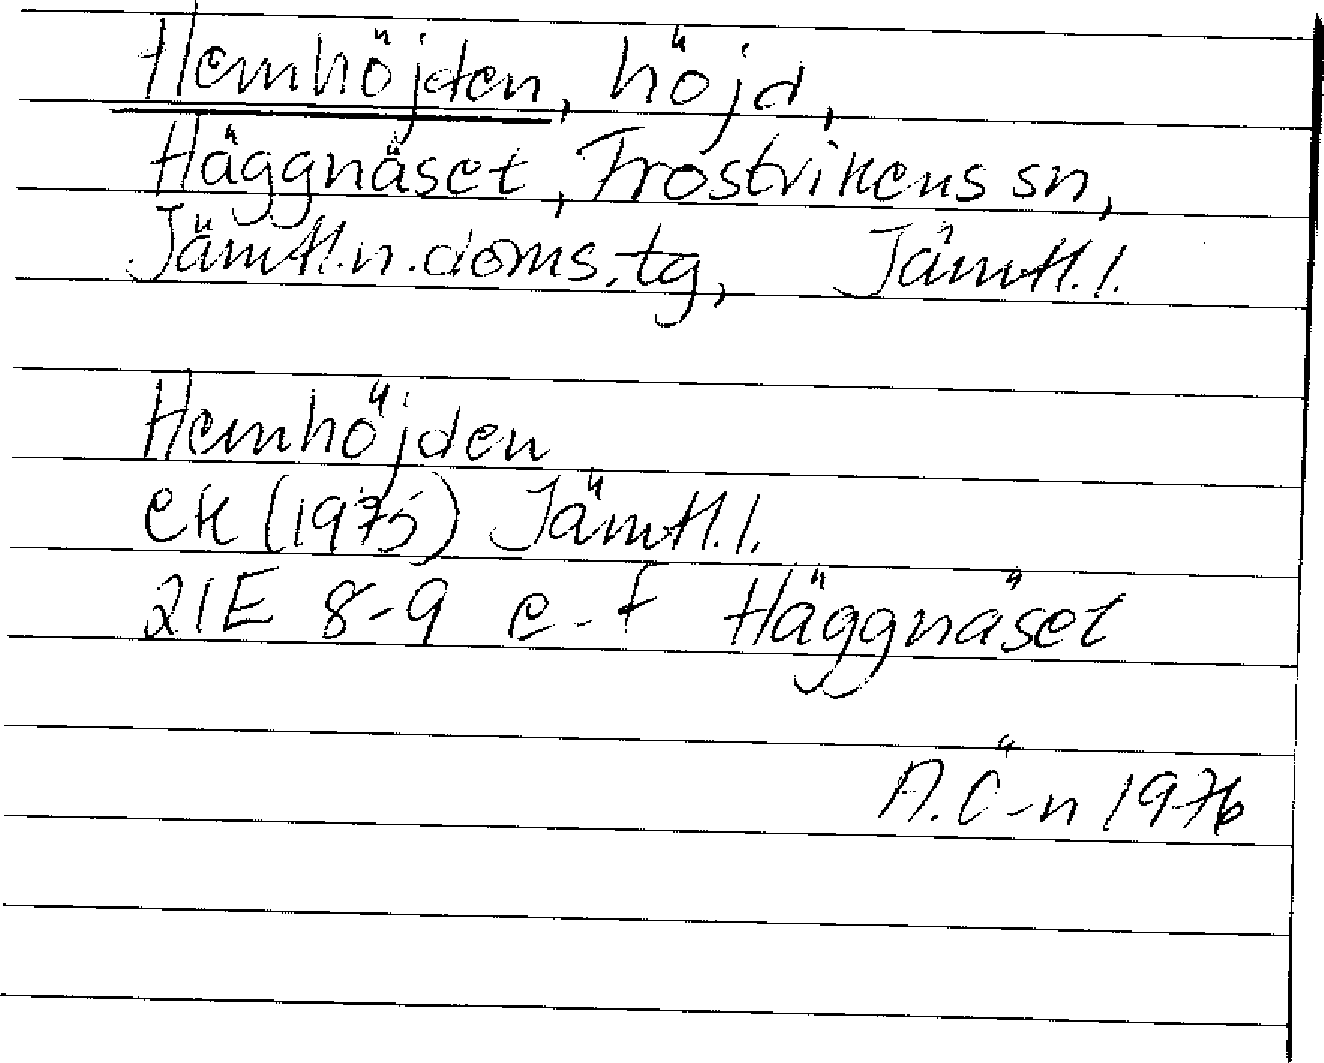 Hemhöjden, höjd,
Häggnäset, Frostvikens sn,
Jämtl.n.doms.tg, Jämtl.l.
Hemhöjden
ek (1975) Jämtl.l.
21E 8-9 e-f Häggnäset
A.Ö-n 1976